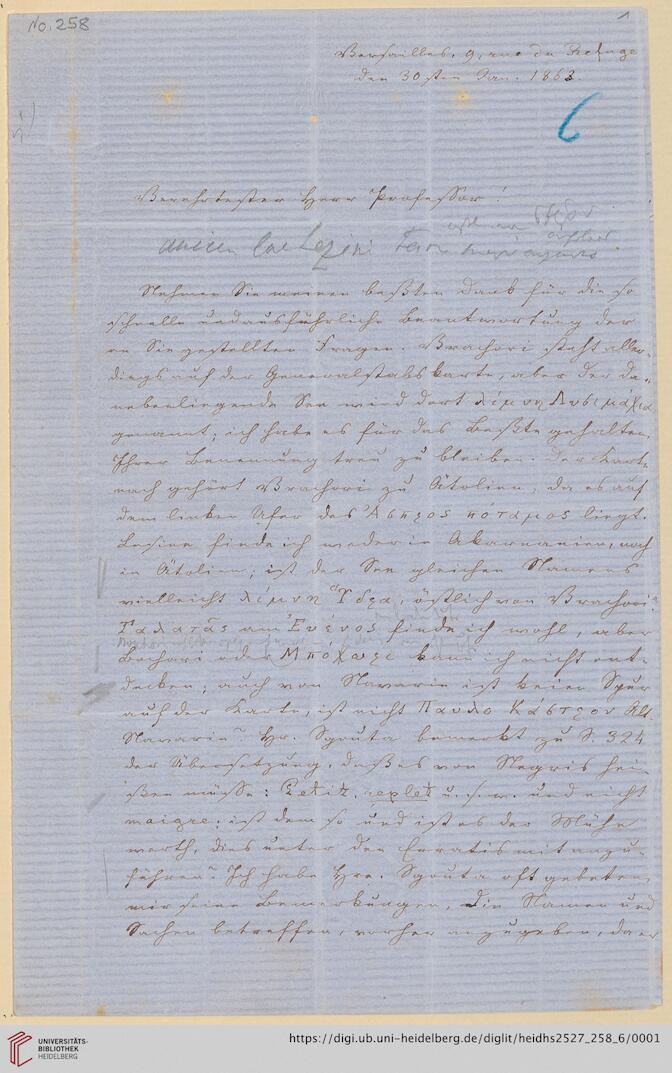 No. 258
1
Versailles, 9, rue du Refuge
den 30sten Jan. 1863.
6
Verehrtester Herr Professor!
Nehmen Sie meinen beßten Dank für die so
schnelle und ausführliche Beantwortung der
an Sie gestellten Fragen. Vrachori steht aller-
dings auf der Generalstabskarte, aber der da-
nebenliegende See wird dort λίμνη Λυσιμαχία
genannt; ich habe es für das Beßte gehalten,
Ihrer Benennung treu zu bleiben. Der Karte
nach gehört Vrachori zu Ätolien, da es auf
dem linken Ufer des Ἄσπρος ποταμος liegt.
Lesine finde ich weder in Akarnanien, noch
in Ätolien; ist der See gleichen Namens
vielleicht λίμνη Ὕδρα, östlich von Vrachori?
Γαλατᾶς am Εὔηνος finde ich wohl, aber
Bochori oder Μποχωρι kann ich nicht ent-
decken; auch von Navarin ist keine Spur
auf der Karte, ist nicht Παυλο Κάστρον Alt
Navarin? Hr. Sgouta bemerkt zu S. 324
der Übersetzung, daß es von Negris hei-
ßen müsse: Petit, replet u. s. w. und nicht
maigre; ist dem so und ist es der Mühe
werth, dies unter den Erratis mit anzu-
führen? Ich habe Hrn. Sgouta oft gebeten,
mir seine Bemerkungen, die Namen und
Sachen betreffen, vorher anzugeben, da er
UNIVERSITÄTS-
BIBLIOTHEK
HEIDELBERG
https://digi.ub.uni-heidelberg.de/diglit/heidhs2527_258_6/0001